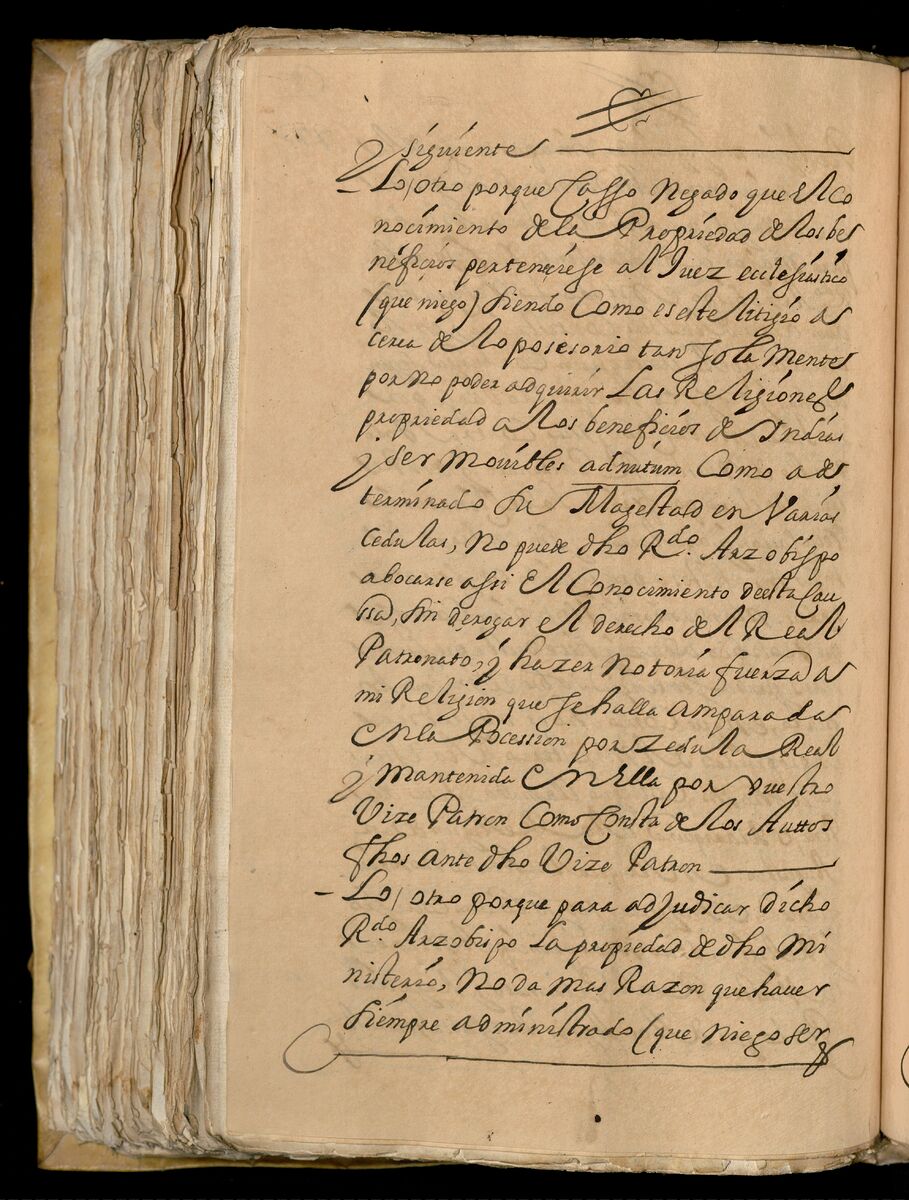 siguiente
Lo otro porque Casso Negado que el Co
nocimiento de la Propriedad de los be
neficios perteneciese al Juez ecclesiastico
(que niego) siendo Como es este litigio a
cerca de lo posesorio tan sola Mente
por no poder adquirir Las Religiones
propriedad a los beneficios de Indias
y ser movibles adnutum Como a de
terminado su Magestad en Varias
Cedulas, No puede dho Rdo. Arzobispo
abocarse assi El Conocimiento de esta Cau
ssa, sin derogar el derecho del Real
Patronato, y hazer notoria fuerza a
mi Religion que se halla amparada
en la Pocession por Zedula Real
y Mantenida En Ella por vuestro
Vize Patron Como Consta de los Auttos
fhos ante dho Vize Patron
Lo otro porque para adJudicar dicho
Rdo Arzobispo La propiedad de dho Mi
nisterio, No da mas Razon que haver
siempre administrado (que niego ser